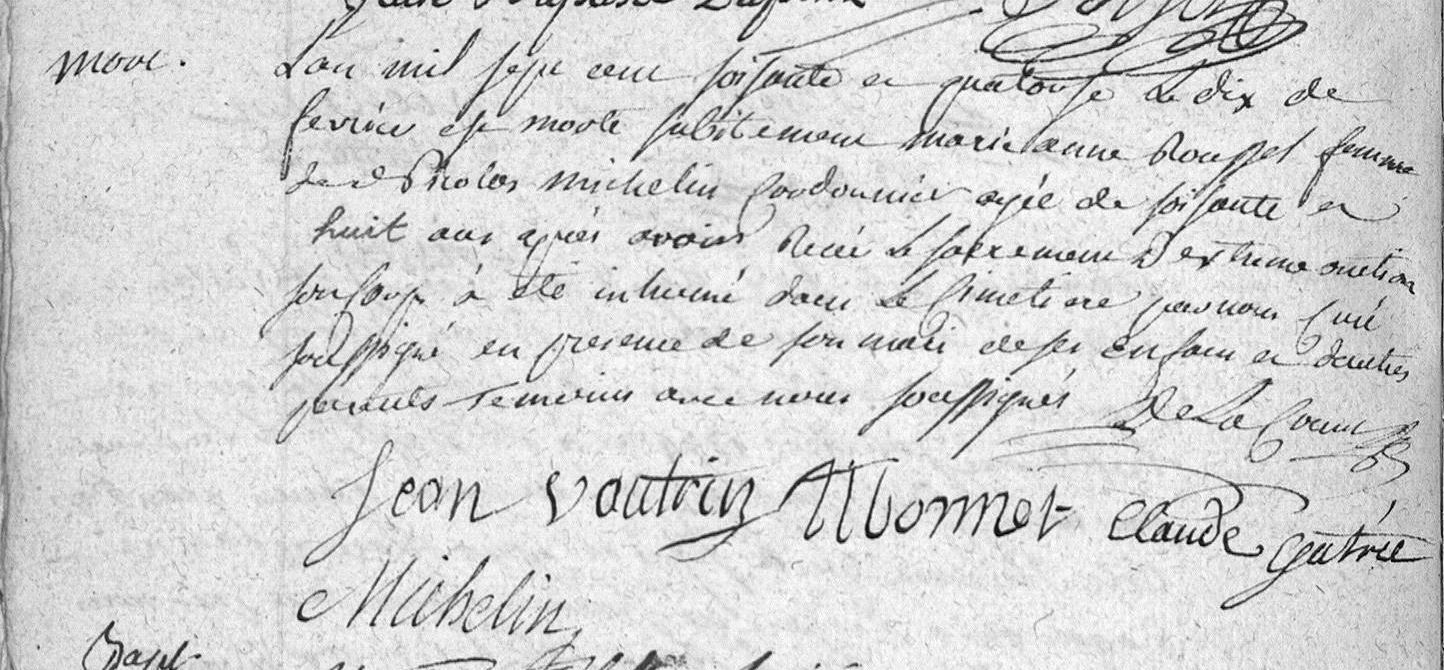 Jean
mort.
L'an mil sept cent soisante et quatorse Le dix de
fevrier est morte subitement marie anne Roussel femme
de Nicolas michelin Cordonnier agée de soisante et
huit ans après avoir Recue Le sacrement D'extreme onction
son Corps à été inhumé dans Le Cimetiere par nous Curé
soussigné en presence de son mari de ses Enfans et dautres
parents Temoins avec nous soussignés De La Cour
Jean vautrin Monnet Claude gutrée
Michelin
Bapt